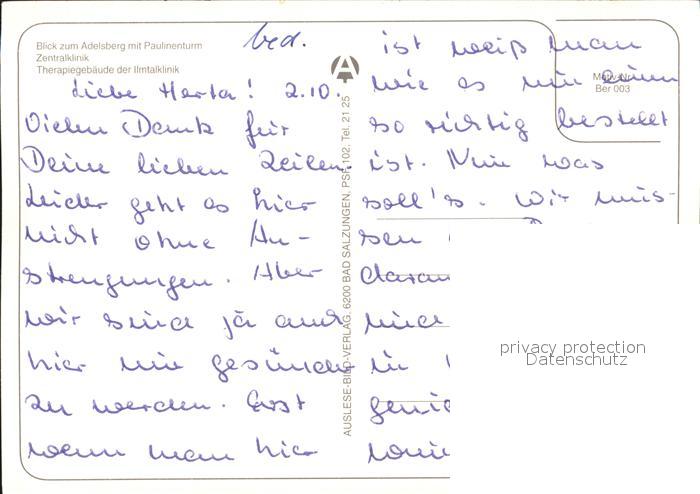 Blick zum Adelsberg mit Paulinenturm
Zentralklinik
Therapiegebäude der Ilmtalklinik
bed.
Motiv-Nr.
Ber 003
Liebe Herta! 2.10.
Vielen Dank für
Deine lieben Zeilen.
Leider geht es hier
nicht ohne An-
strengungen. Aber
wir sind ja auch
hier um gesünder
zu werden. Erst
wenn man hier
AUSLESE-BILD-VERLAG, 6200 BAD SALZUNGEN, PSF 102, Tel. 21 25
ist weiß man
wie es um einen
so richtig bestellt
ist. Nun was
soll's. Wir müs-
sen
daran
und
in
wie
privacy protection
Datenschutz